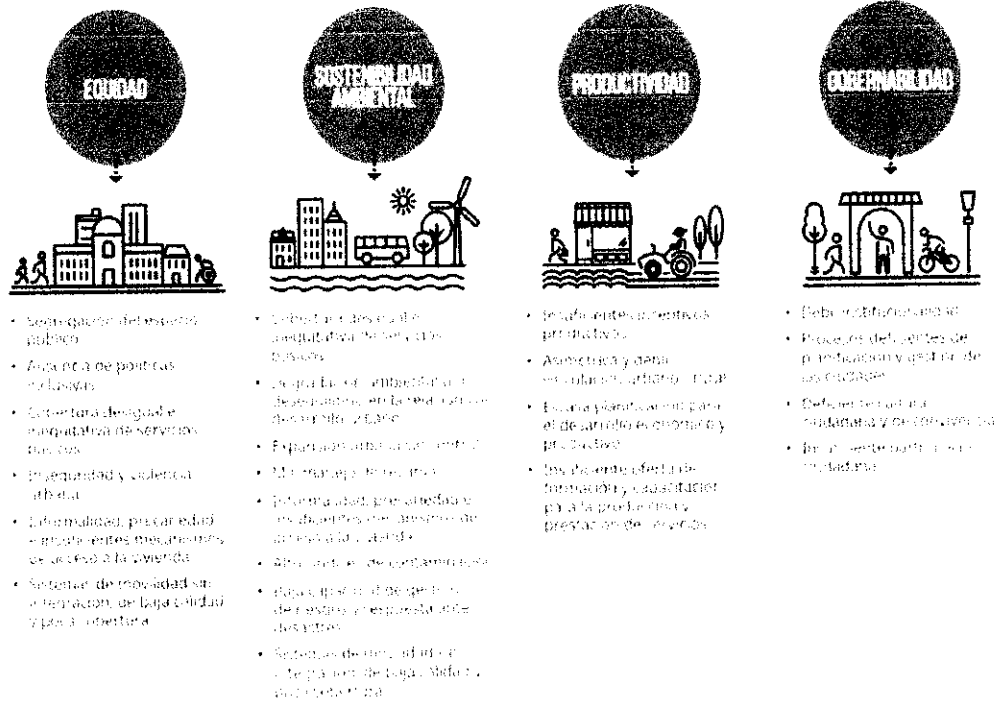 EQUIDAD
• Segregación del espacio
público
• Ausencia de políticas
inclusivas
• Cobertura desigual e
inequitativa de servicios
básicos
• Inseguridad y violencia
urbana
• Informalidad, precariedad
e insuficientes mecanismos
de acceso a la vivienda
• Sistemas de movilidad sin
integración, de baja calidad
y poca cobertura
SOSTENIBILIDAD
AMBIENTAL
• Cobertura desigual e
inequitativa de servicios
básicos
• ambiental
en la relación
desarrollo urbano
• Expansión urbana
• Mal manejo de
• Informalidad, precariedad e
insuficientes mecanismos de
acceso a la vivienda
• de contaminación
• Baja capacidad de gestión
de riesgos y respuesta ante
desastres
• Sistemas de movilidad sin
integración, de baja calidad y
poca cobertura
PRODUCTIVIDAD
• Insuficientes incentivos
productivos
• Asimétrica y débil
vinculación urbano - rural
• Escasa planificación para
el desarrollo económico y
productivo
• Insuficiente oferta de
formación y capacitación
para la producción y
prestación de servicios
GOBERNABILIDAD
• Débil institucionalidad
• Procesos deficientes de
planificación y gestión de
las ciudades
• Deficiente cultura
ciudadana y de convivencia
• Insuficiente participación
ciudadana